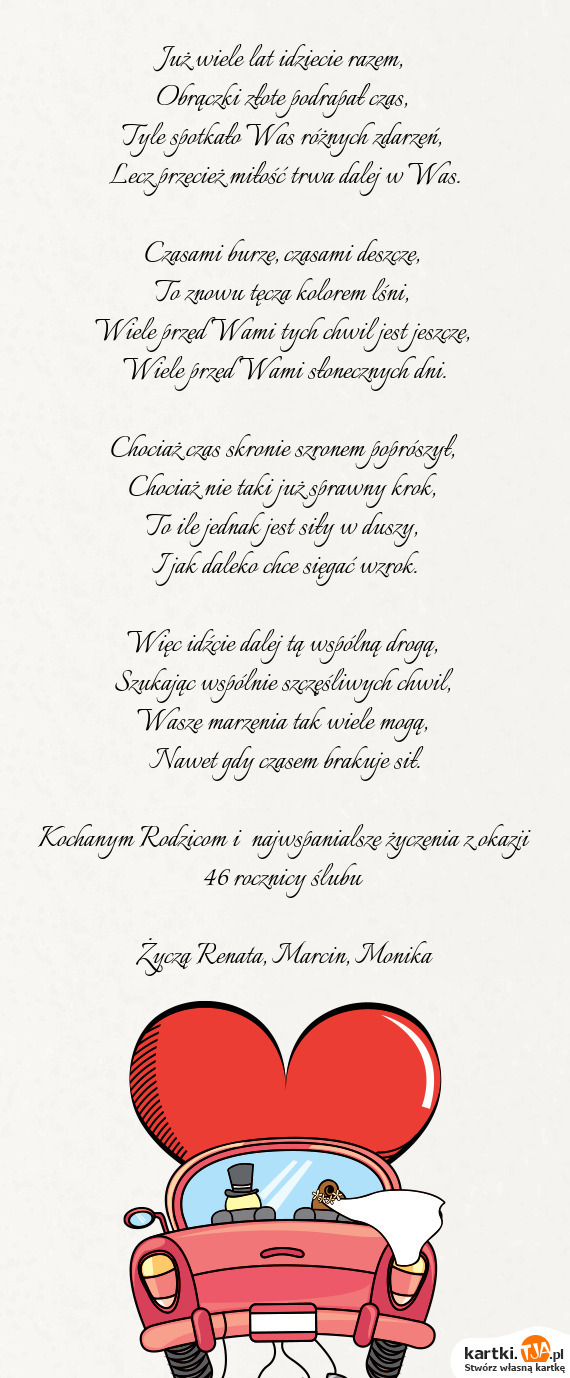 Już wiele lat idziecie razem,
Obrączki złote podrapał czas,
Tyle spotkało Was różnych zdarzeń,
Lecz przecież miłość trwa dalej w Was.

Czasami burze, czasami deszcze,
To znowu tęcza kolorem lśni,
Wiele przed Wami tych chwil jest jeszcze,
Wiele przed Wami słonecznych dni.

Chociaż czas skronie szronem poprószył,
Chociaż nie taki już sprawny krok,
To ile jednak jest siły w duszy,
I jak daleko chce sięgać wzrok.

Więc idźcie dalej tą wspólną drogą,
Szukając wspólnie szczęśliwych chwil,
Wasze marzenia tak wiele mogą,
Nawet gdy czasem brakuje sił.

Kochanym Rodzicom i najwspanialsze życzenia z okazji
46 rocznicy ślubu

Życzą Renata, Marcin, Monika

kartki.TJA.pl
Stwórz własną kartkę